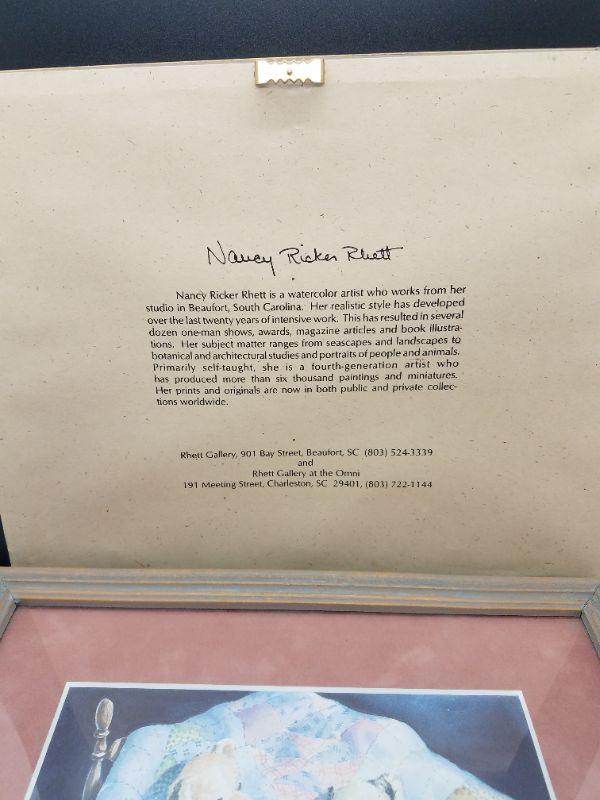 Nancy Ricker Rhett
Nancy Ricker Rhett is a watercolor artist who works from her
studio in Beaufort, South Carolina. Her realistic style has developed
over the last twenty years of intensive work. This has resulted in several
dozen one-man shows, awards, magazine articles and book illustra-
tions. Her subject matter ranges from seascapes and landscapes to
botanical and architectural studies and portraits of people and animals.
Primarily self-taught, she is a fourth-generation artist who
has produced more than six thousand paintings and miniatures.
Her prints and originals are now in both public and private collec-
tions worldwide.
Rhett Gallery, 901 Bay Street, Beaufort, SC (803) 524-3339
and
Rhett Gallery at the Omni
191 Meeting Street, Charleston, SC 29401, (803) 722-1144